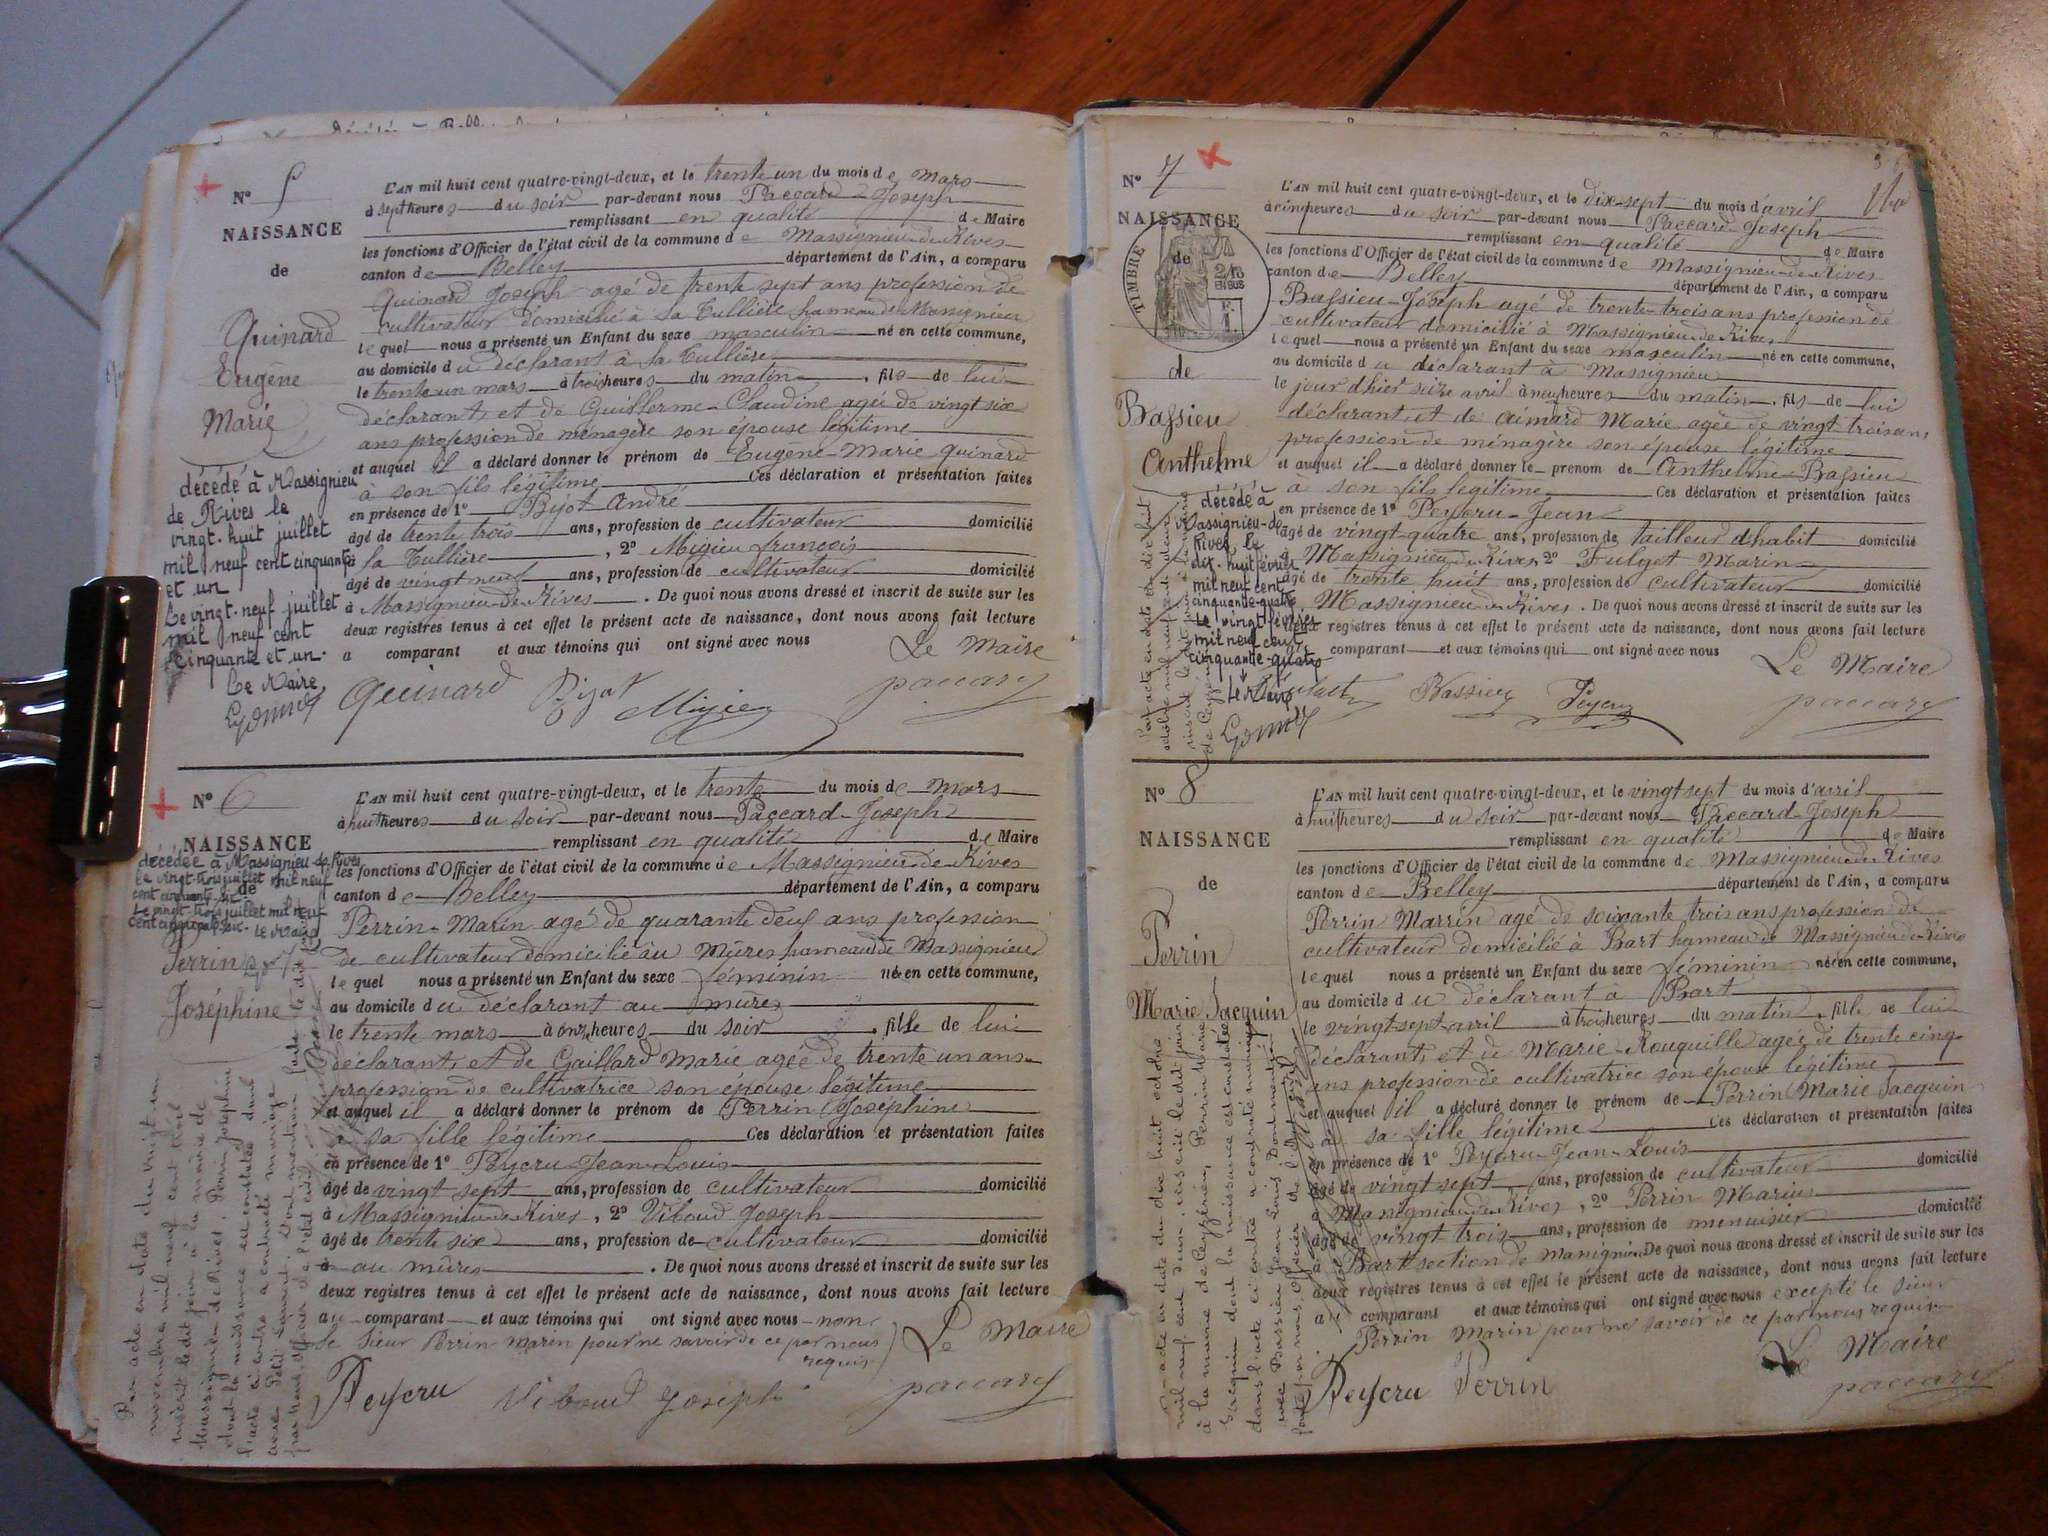 N° 5
NAISSANCE
de
Quinard
Eugène
Marie
décédé à Massignieu
de Rives le
vingt-huit juillet
mil neuf cent cinquante
et un
Le vingt-neuf juillet
mil neuf cent
cinquante et un.
Le Maire
L'AN mil huit cent quatre-vingt-deux, et le trente un du mois de mars
à sept heures du soir par-devant nous Paccard Joseph
remplissant en qualité de Maire
les fonctions d'Officier de l'état civil de la commune de Massignieu-de-Rives
canton de Belley département de l'Ain, a comparu
Quinard Joseph agé de trente sept ans profession de
cultivateur domicilié à la Tullière hameau de Massignieu
lequel nous a présenté un Enfant du sexe masculin né en cette commune,
au domicile du déclarant à la Tullière
le trente un mars à trois heures du matin, fils de lui
déclarant, et de Guillerme Claudine agée de vingt six
ans profession de ménagère son épouse légitime
et auquel il a déclaré donner le prénom de Eugène-Marie Quinard
à son fils légitime Ces déclaration et présentation faites
en présence de 1° Bijot André
âgé de trente trois ans, profession de cultivateur domicilié
à la Tullière, 2° Migieu françois
âgé de vingt neuf ans, profession de cultivateur domicilié
à Massignieu-de-Rives. De quoi nous avons dressé et inscrit de suite sur les
deux registres tenus à cet effet le présent acte de naissance, dont nous avons fait lecture
a comparant et aux témoins qui ont signé avec nous
Le Maire
Quinard Bijot Migieu paccard
N° 6
NAISSANCE
de
décédée à Massignieu-de-Rives
le vingt-trois juillet mil neuf
cent cinquante six
Le vingt-trois juillet mil neuf
cent cinquante six. Le Maire
Perrin
Joséphine
L'AN mil huit cent quatre-vingt-deux, et le trente du mois de mars
à huit heures du soir par-devant nous Paccard Joseph
remplissant en qualité de Maire
les fonctions d'Officier de l'état civil de la commune de Massignieu-de-Rives
canton de Belley département de l'Ain, a comparu
Perrin Marin agé de quarante deux ans profession
de cultivateur domicilié au Mûres hameau de Massignieu
lequel nous a présenté un Enfant du sexe féminin née en cette commune,
au domicile du déclarant au mûres
le trente mars à onz heures du soir, fille de lui
déclarant, et de Gaillard Marie agée de trente un ans
profession de cultivatrice son épouse légitime
et auquel il a déclaré donner le prénom de Perrin Joséphine
à sa fille légitime Ces déclaration et présentation faites
en présence de 1° Peycru Jean Louis
âgé de vingt sept ans, profession de cultivateur domicilié
à Massignieu-de-Rives, 2° Viboud Joseph
âgé de trente six ans, profession de cultivateur domicilié
au mûres. De quoi nous avons dressé et inscrit de suite sur les
deux registres tenus à cet effet le présent acte de naissance, dont nous avons fait lecture
au comparant et aux témoins qui ont signé avec nous non
le sieur Perrin Marin pour ne savoir de ce par nous
requis Le Maire
Peycru Viboud Joseph paccard
Par acte en date du vingt un
novembre mil neuf cent trois
inscrit le dit jour à la mairie de
Massignieu de Rives, Perrin Joséphine
dont la naissance est constatée dans
l'acte ci contre a contracté mariage
avec Petit Laurent. Dont mention
N° 7
NAISSANCE
de
TIMBRE
de
Bassieu
Anthelme
décédé à
Massignieu-de
Rives le
dix-huit février
mil neuf cent
cinquante-quatre
Le vingt février
mil neuf cent
cinquante-quatre
Le Maire
L'AN mil huit cent quatre-vingt-deux, et le dix-sept du mois d'avril
à cinq heures du soir par-devant nous Paccard Joseph
remplissant en qualité de Maire
les fonctions d'Officier de l'état civil de la commune de Massignieu-de-Rives
canton de Belley département de l'Ain, a comparu
Bassieu Joseph agé de trente-trois ans profession de
cultivateur domicilié à Massignieu de Rives
lequel nous a présenté un Enfant du sexe masculin né en cette commune,
au domicile du déclarant à Massignieu
le jour d'hier seize avril à neuf heures du matin, fils de lui
déclarant, et de Aimard Marie agée de vingt trois ans,
profession de ménagère son épouse légitime
et auquel il a déclaré donner le prenom de Anthelme Bassieu
à son fils légitime Ces déclaration et présentation faites
en présence de 1° Peycru Jean
âgé de vingt-quatre ans, profession de tailleur d'habit domicilié
à Massignieu de Rives 2° Fulget Marin
âgé de trente huit ans, profession de cultivateur domicilié
Massignieu de Rives. De quoi nous avons dressé et inscrit de suite sur les
deux registres tenus à cet effet le présent acte de naissance, dont nous avons fait lecture
comparant et aux témoins qui ont signé avec nous
Le Maire
Bassieu Peycru paccard
N° 8
NAISSANCE
de
Perrin
Marie Jacquin
L'AN mil huit cent quatre-vingt-deux, et le vingt sept du mois d'avril
à huit heures du soir par-devant nous Paccard Joseph
remplissant en qualité de Maire
les fonctions d'Officier de l'état civil de la commune de Massignieu de Rives
canton de Belley département de l'Ain, a comparu
Perrin Marrin agé de soixante trois ans profession de
cultivateur domicilié à Bart hameau de Massignieu de Rives
lequel nous a présenté un Enfant du sexe féminin née en cette commune,
au domicile du déclarant à Bart
le vingt-sept avril à trois heures du matin, fille de lui
déclarant, et de Marie Rouquille agée de trente cinq
ans profession de cultivatrice son épouse légitime
et auquel il a déclaré donner le prénom de Perrin Marie Jacquin
à sa fille légitime Ces déclaration et présentation faites
en présence de 1° Peycru Jean-Louis
âgé de vingt sept ans, profession de cultivateur domicilié
à Massignieu de Rives, 2° Perrin Marius
âgé de vingt trois ans, profession de menuisier domicilié
à Bart section de Massignieu De quoi nous avons dressé et inscrit de suite sur les
deux registres tenus à cet effet le présent acte de naissance, dont nous avons fait lecture
au comparant et aux témoins qui ont signé avec nous excepté le sieur
Perrin Marin pour ne savoir de ce par nous requis
Le Maire
Peycru Perrin paccard
Par acte en date du dix huit octobre
mil neuf cent deux, inscrit le dit jour
à la mairie de Ceyzérieu, Perrin Marie
Jacquin dont la naissance est constatée
dans l'acte ci contre a contracté mariage
avec Bassieu Jean Louis. Dont mention